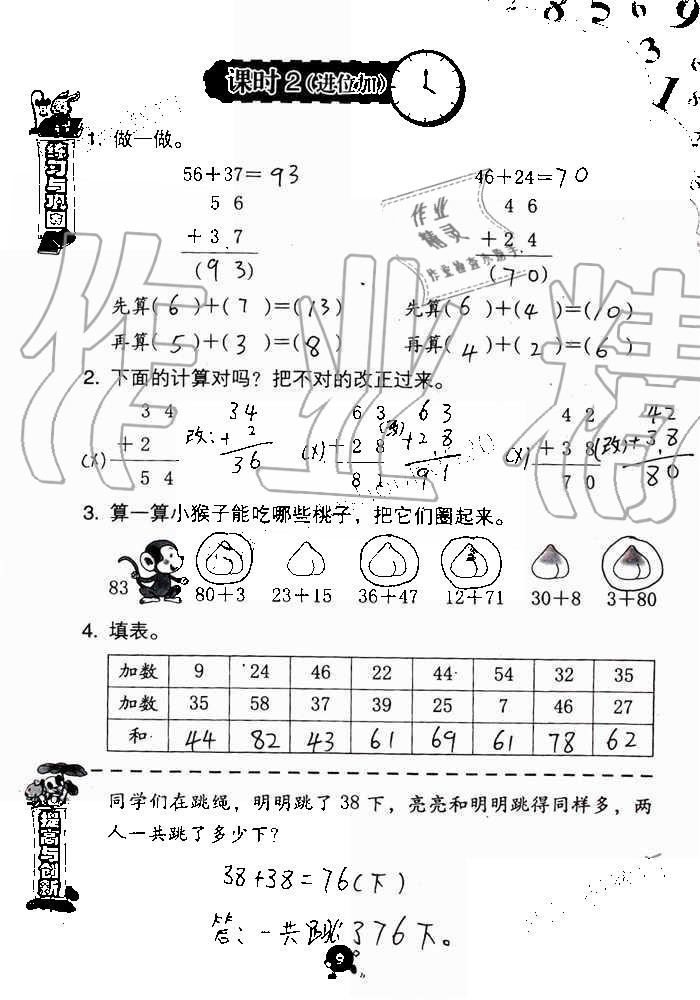 8 5 6 9
3
1
课时2(进位加)
练习与巩固
1. 做一做。
56+37=93 46+24=70
5 6 4 6
+3 7 +2 4
(9 3) (7 0)
先算(6)+(7)=(13) 先算(6)+(4)=(10)
再算(5)+(3)=(8) 再算(4)+(2)=(6)
2. 下面的计算对吗？把不对的改正过来。
3 4 34 6 3 63 4 2 42
(×) +2 改: +2 (×) +2 8 (改) +28 (×) +3 8 (改) +38
5 4 36 8 1 91 7 0 80
3. 算一算小猴子能吃哪些桃子，把它们圈起来。
83 80+3 23+15 36+47 12+71 30+8 3+80
4. 填表。
加数 9 24 46 22 44 54 32 35
加数 35 58 37 39 25 7 46 27
和 44 82 43 61 69 61 78 62
提高与创新
同学们在跳绳，明明跳了 38 下，亮亮和明明跳得同样多，两
人一共跳了多少下？
38+38=76(下)
答：一共跳了76下。
9
作业精灵
作业精灵
作业检查小帮手